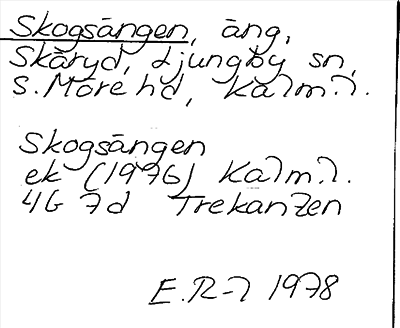 Skogsängen, äng,
Skäryd, Ljungby sn,
S. Möre hd, Kalm. l.
Skogsängen
ek (1976) Kalm. l.
4G 7d Trekanten
E. R-l 1978